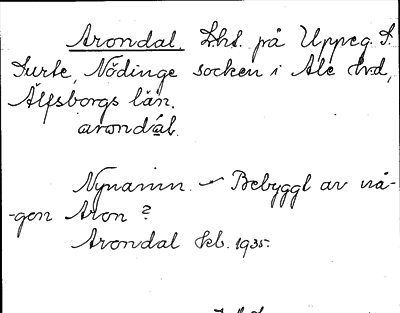 Arondal. Lht. på Uppeg. S.
Surte, Nödinge socken i Ale hd,
Älfsborgs län.
arondál.
Nynamn. – Bebyggt av nå-
-gon Aron?
Arondal Skb. 1935.